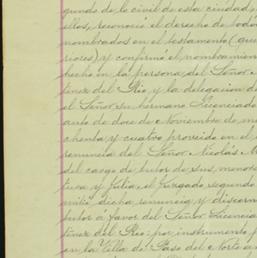 gundo de lo civil de esta ciudad,
ellos, reconoció el derecho de todos
nombrados en el testamento (que
riores) y confirmó el nombramien
hecho en la persona del Señor
tinez del Rio y la delegacion de
el Señor su hermano Licenciado
auto de doce de Noviembre de mi
chenta y cuatro proveido en el
renuncia del Señor Nicolás M
del cargo de tutor de sus menore
tura y Julia, el Juzgado segundo
mitió dicha renuncia y discern
tutor á favor del Señor Licencia
tinez del Rio: por instrumento p
en la Villa de Paso del Norte a